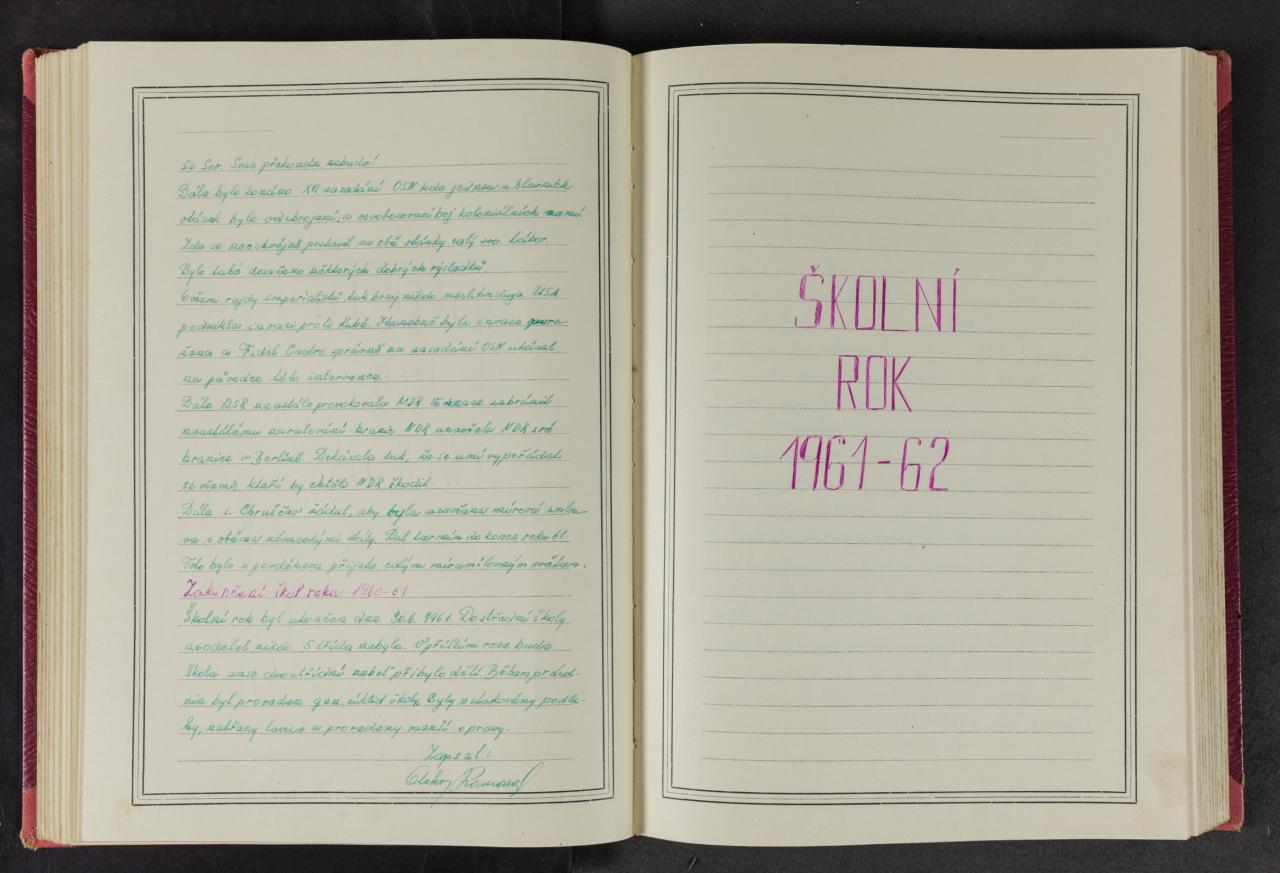 že Sov. Svaz překonán nebude!
Dále bylo konáno XVI zasedání OSN kde jednou z hlavních
otázek bylo odzbrojení, a osvobozovací boj koloniálních zemí.
Zde se neochvějně postavil za obě otázky celý soc. tábor.
Bylo také dosaženo některých dobrých výsledků
Ovšem rejdy imperialistů tak brzy nikdo nezlikviduje USA
podnikla invazi proti Kubě. Hanebně byla invaze pora-
žena a Fidel Castro správně na zasedání OSN ukázal
na původce této intervence.
Dále NSR neustále provokovala NDR. zabránit
neustálému narušování hranic NDR uzavřela NDR své
hranice v Berlíně. Dokázala tak, že se umí vypořádat
se všemi, kteří by chtěli NDR škodit.
Dále s. Chruščov žádal, aby byla uzavřena mírová smlou-
va s oběma německými státy. Dal termín do konce roku 61.
Toto bylo s povděkem přijato celým mírumilovným světem.
Zakončení škol roku 1960-61
Školní rok byl ukončen dne 30.6. 1961. Do střední školy
neodešel nikdo. 5 třída nebyla. V příštím roce bude
škola zase dvoutřídní neboť přibylo dětí. Během prázd-
nin byl proveden gen. úklid školy. Byly nalakovány podla-
hy, natřeny lavice a provedeny menší opravy.
Zapsal:
ŠKOLNÍ
ROK
1961-62